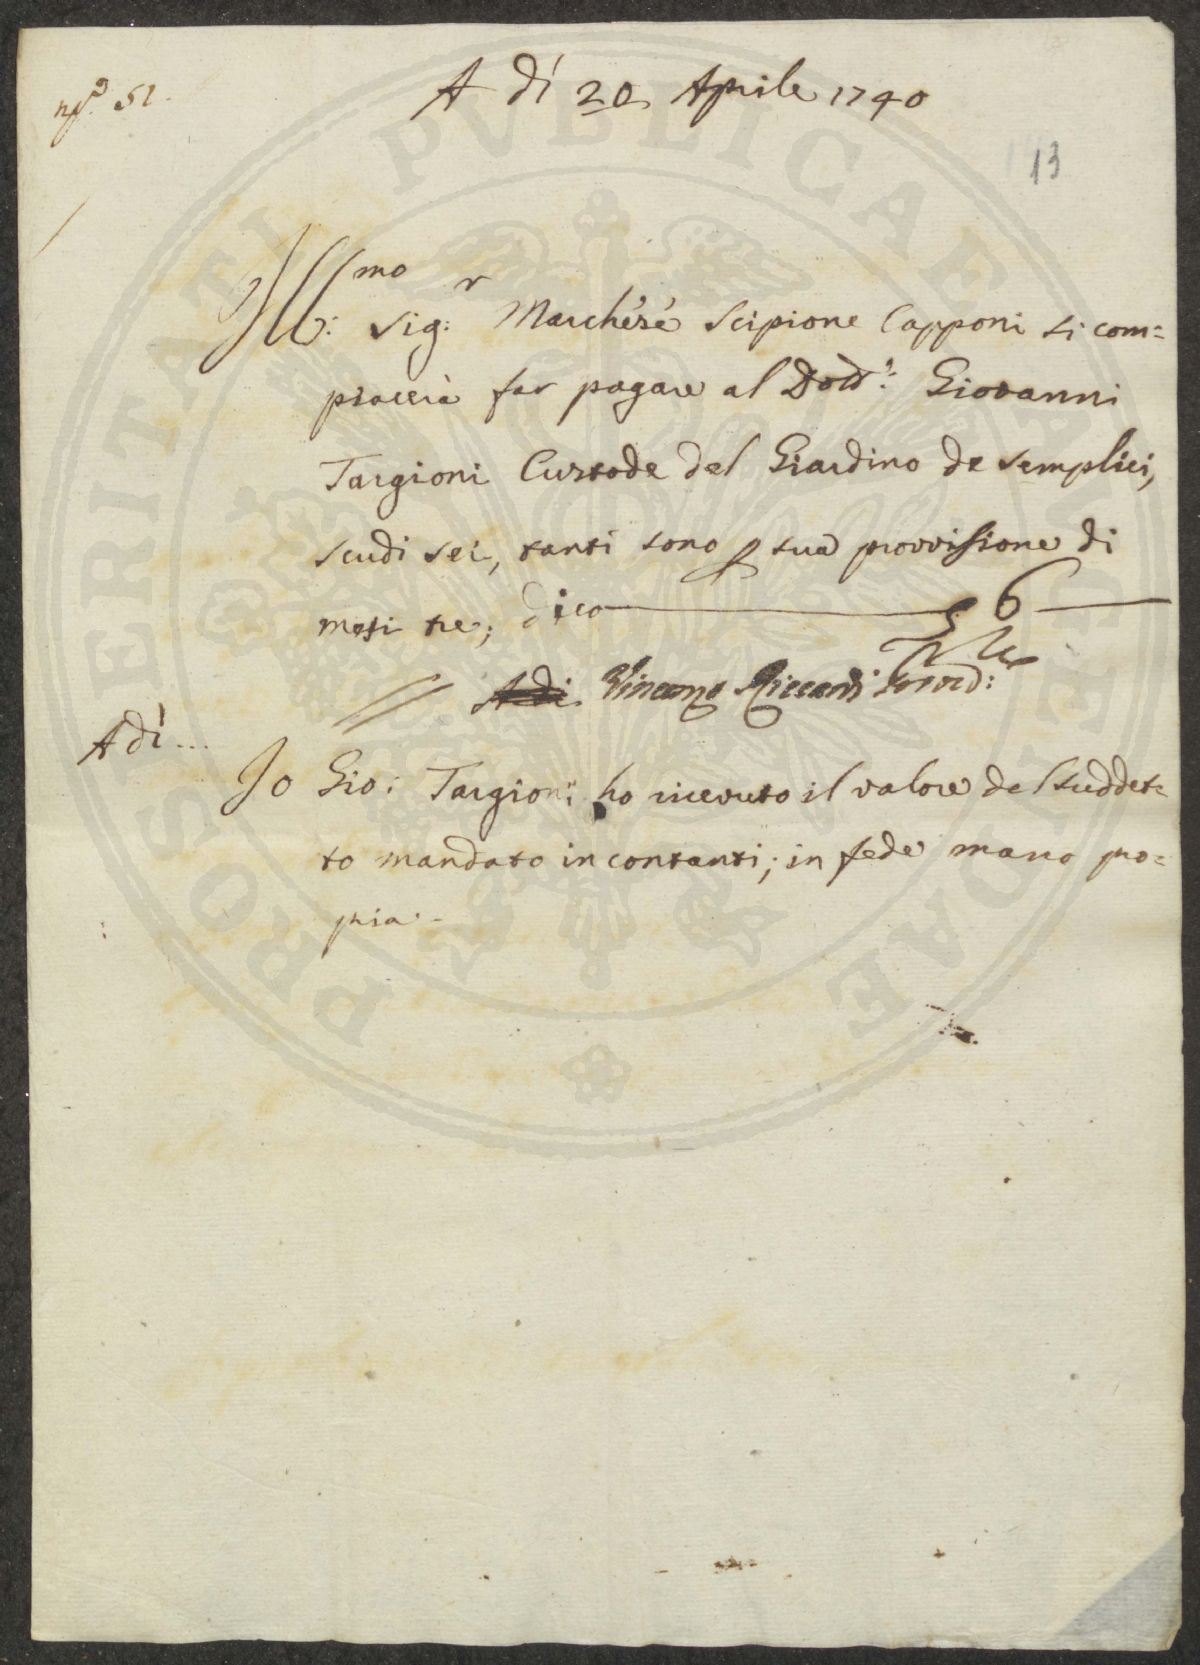 n.o 51.
A dì 20 Aprile 1740
13
Ill:mo Sig:r Marchese Scipione Capponi si com=
piacerà far pagare al Dott:e Giovanni
Targioni Custode del Giardino de Semplici,
scudi sei, tanti sono p sua provvisione di
mesi tre; dico 6
Vincenzo Riccardi Provd:
A dì ...
Io Gio: Targioni ho ricevuto il valore del suddet=
to mandato in contanti; in fede mano pro=
pria.
PROSPERITATI PVBLICAE AVGENDAE